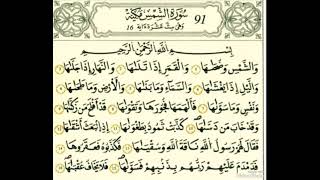 سُورَةُ الشَّمْسِ مَكِّيَّة 91
16
بِسْمِ اللَّهِ الرَّحْمَٰنِ الرَّحِيمِ
وَالشَّمْسِ وَضُحَىٰهَا وَالْقَمَرِ إِذَا تَلَىٰهَا وَالنَّهَارِ إِذَا جَلَّىٰهَا
وَالَّيْلِ إِذَا يَغْشَىٰهَا وَالسَّمَآءِ وَمَا بَنَىٰهَا وَالْأَرْضِ وَمَا طَحَىٰهَا
وَنَفْسٍ وَمَا سَوَّىٰهَا فَأَلْهَمَهَا فُجُورَهَا وَتَقْوَىٰهَا قَدْ أَفْلَحَ مَن زَكَّىٰهَا
وَقَدْ خَابَ مَن دَسَّىٰهَا كَذَّبَتْ ثَمُودُ بِطَغْوَىٰهَا إِذِ انۢبَعَثَ أَشْقَىٰهَا
فَقَالَ لَهُمْ رَسُولُ اللَّهِ نَاقَةَ اللَّهِ وَسُقْيَٰهَا فَكَذَّبُوهُ فَعَقَرُوهَا
فَدَمْدَمَ عَلَيْهِمْ رَبُّهُم بِذَنۢبِهِمْ فَسَوَّىٰهَا فَلَا يَخَافُ عُقْبَٰهَا